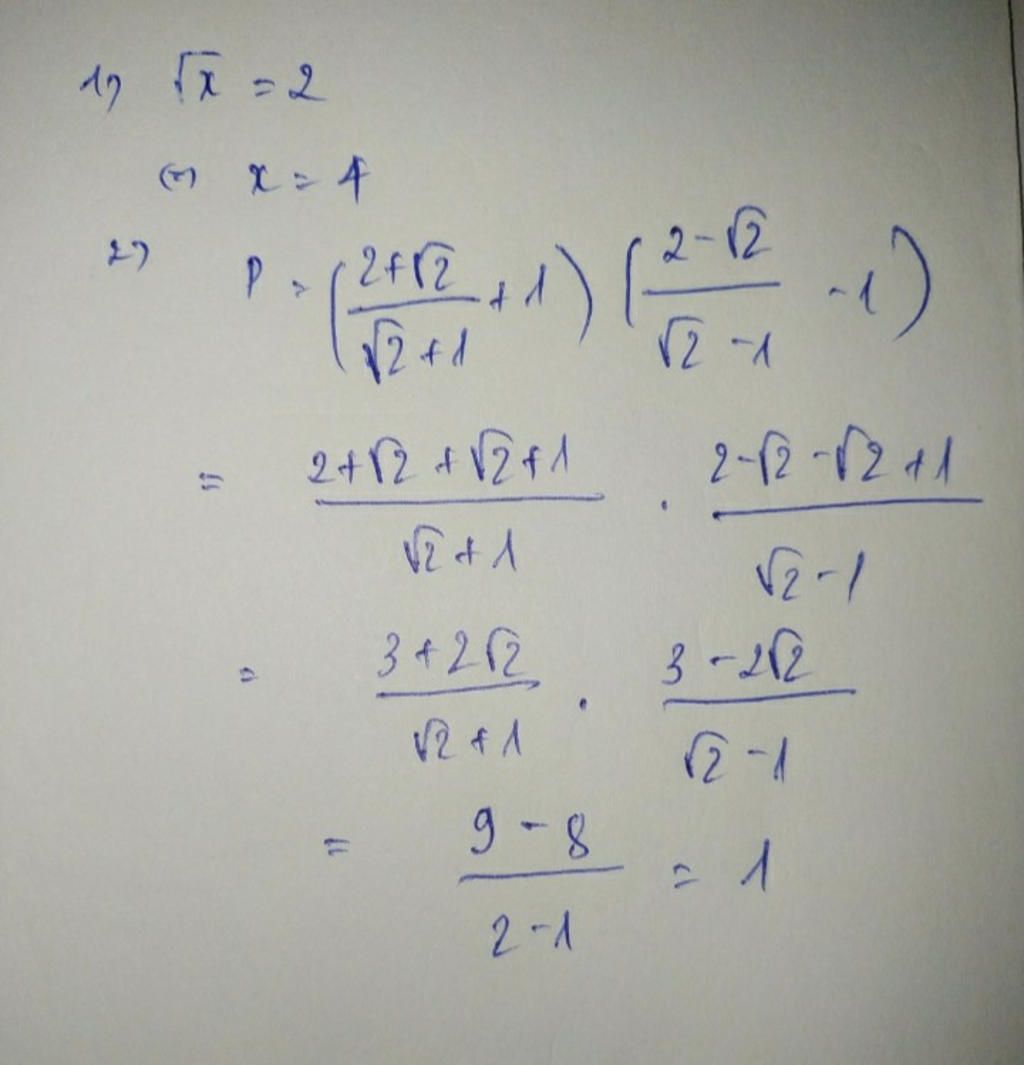 1) √x = 2
(=) x = 4
2) P = ( (2+√2)/(√2+1) + 1 ) ( (2-√2)/(√2-1) - 1 )
= (2+√2+√2+1)/(√2+1) . (2-√2-√2+1)/(√2-1)
= (3+2√2)/(√2+1) . (3-2√2)/(√2-1)
= (9-8)/(2-1) = 1